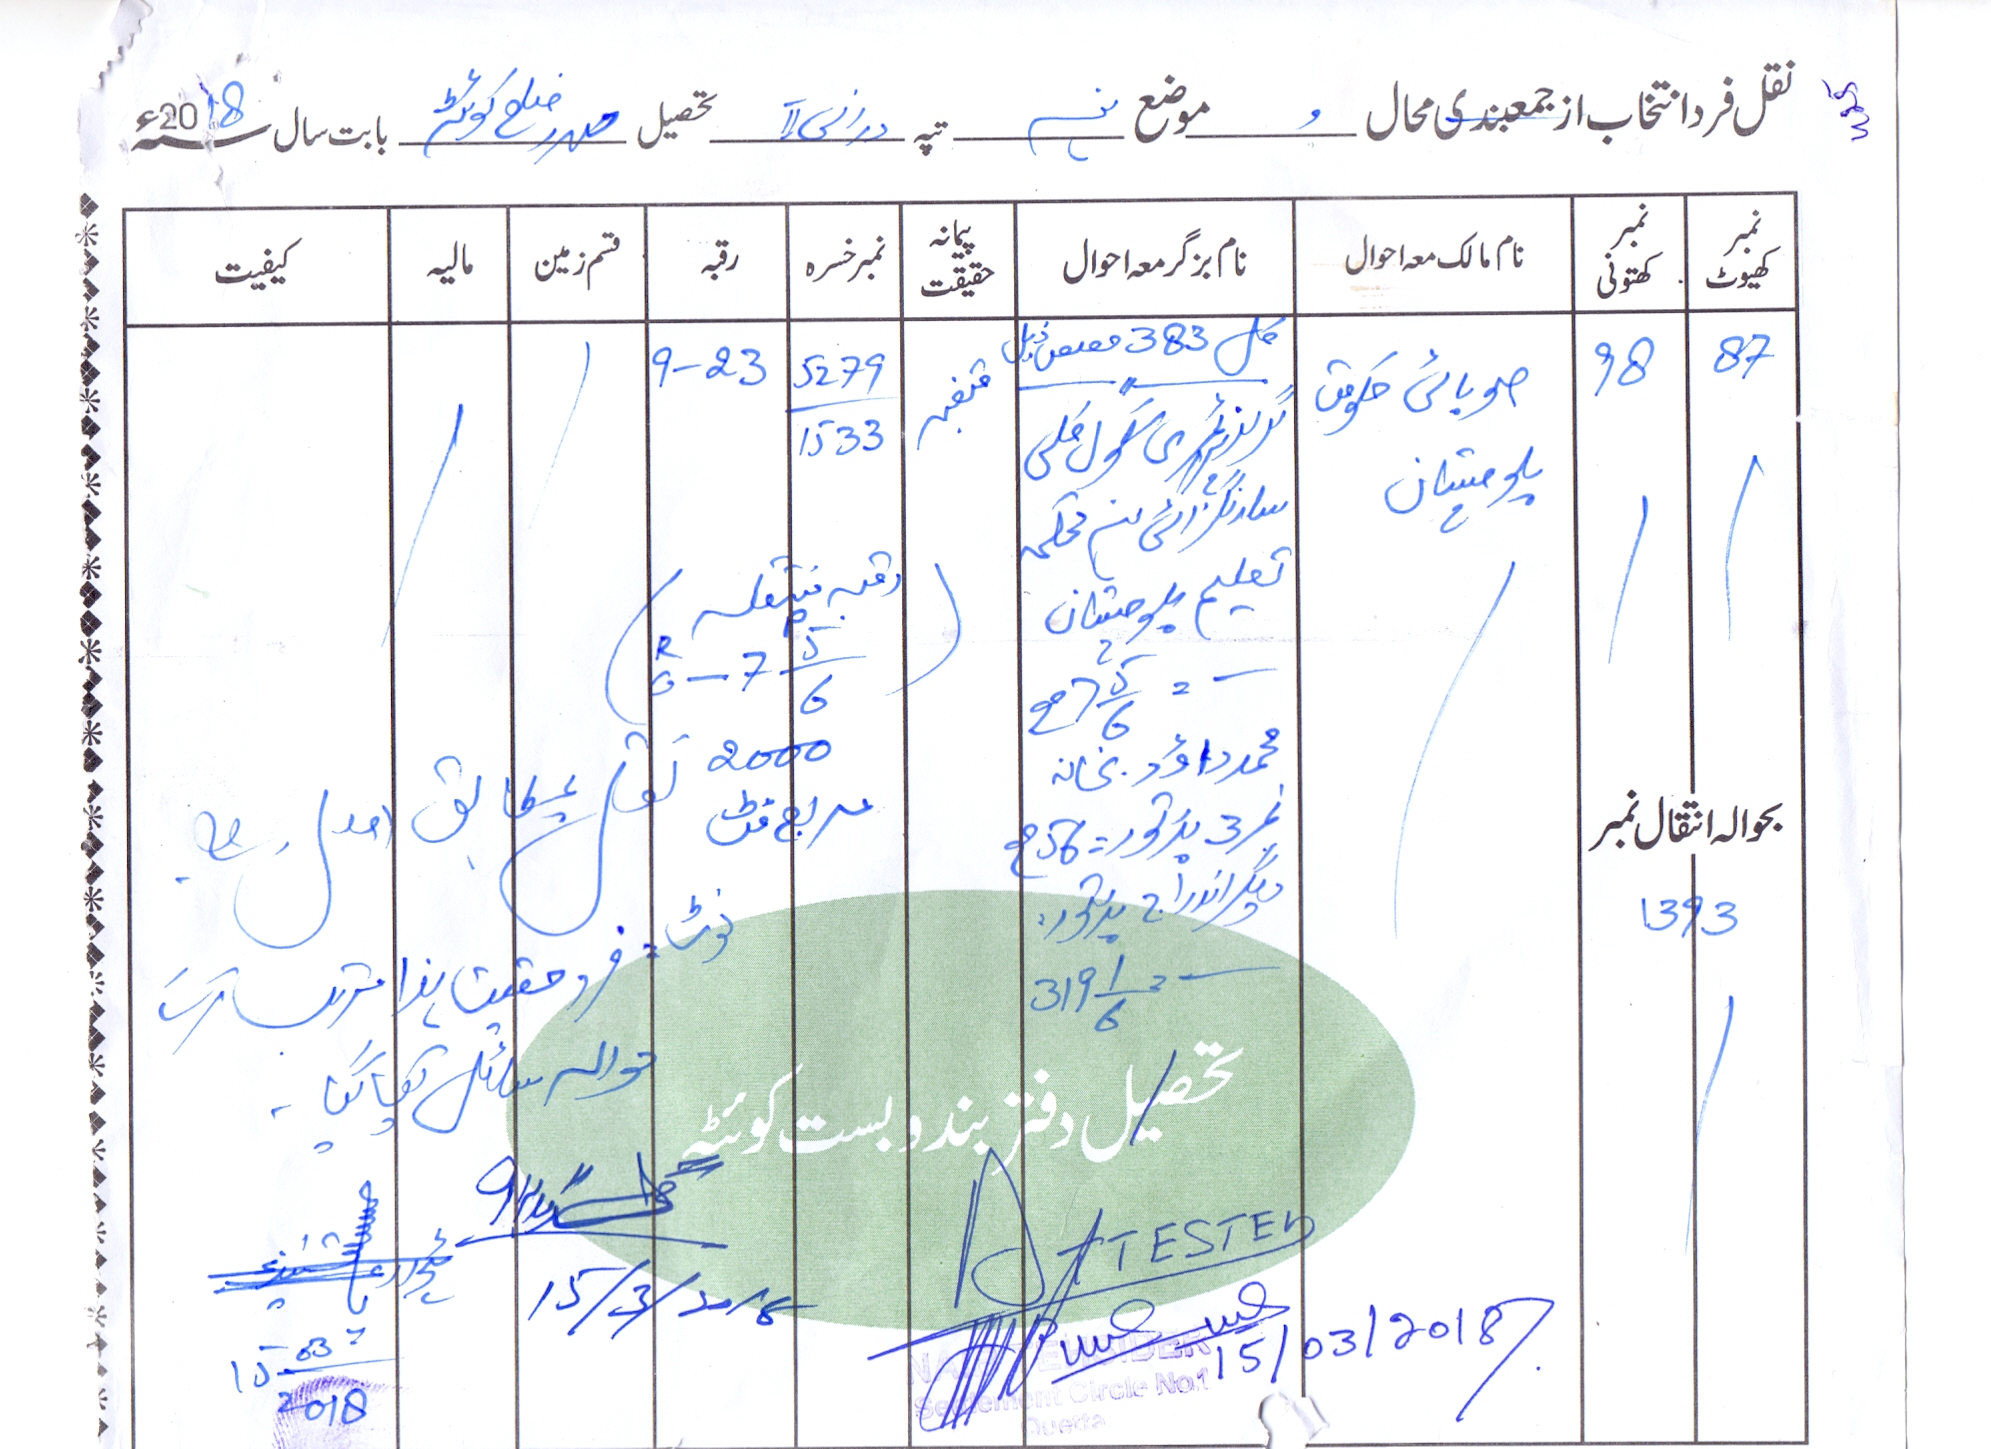 نقل فرد انتخاب از جمعبندی محال و موضع تپہ درانی II تحصیل صدر ضلع کوئٹہ بابت سال 2018ء
نمبر کھیوٹ
نمبر کھتونی
نام مالک معہ احوال
نام بزگر معہ احوال
پیمانہ حقیقت
نمبر خسرہ
رقبہ
قسم زمین
مالیہ
کیفیت
87
98
صوبائی حکومت
بلوچستان
کل 383 حصص ذیل
گرلز پرائمری سکول کلی
محکمہ
تعلیم بلوچستان
= 7 5/6
محمد داؤد بخانہ
نمبر 3 بدستور = 56
دیگر اندراج بدستور
= 319 1/6
قبضہ
5279
1533
9-23
(رقبہ منتقلہ
R 0 - P 7 5/6)
2000
مربع فٹ
نقل بمطابق اصل ہے۔
نوٹ = فرد حقیقت ہذا مرتب
حوالہ سائل کیا گیا۔
بحوالہ انتقال نمبر
1393
تحصیل دفتر بندوبست کوئٹہ
15/3/2018
15-03-2018
ATTESTED
15/03/2018
NAIB TEHSILDER
Settlement Circle No.1
Quetta